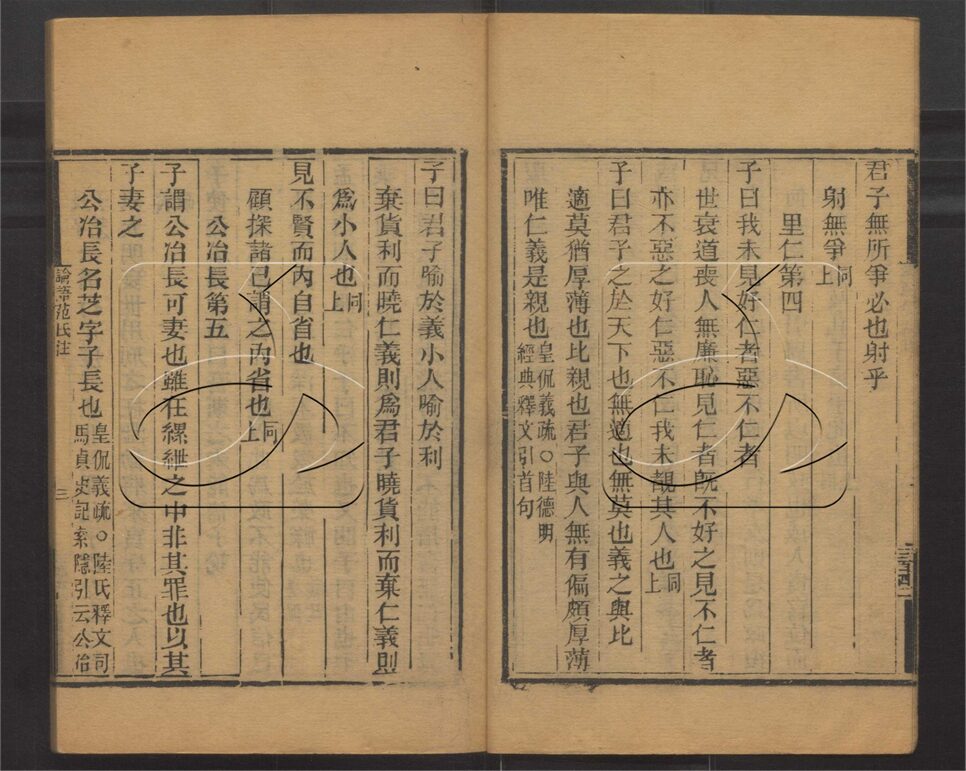 君子無所爭必也射乎
射無爭同上
里仁第四
子曰我未見好仁者惡不仁者
世衰道喪人無廉恥見仁者既不好之見不仁者
亦不惡之好仁惡不仁我未覩其人也同上
子曰君子之於天下也無適也無莫也義之與比
適莫猶厚薄也比親也君子與人無有偏頗厚薄
唯仁義是親也皇侃義疏○陸德明經典釋文引首句
子曰君子喻於義小人喻於利
棄貨利而曉仁義則爲君子曉貨利而棄仁義則
爲小人也同上
見不賢而內自省也
顧探諸己謂之內省也同上
公冶長第五
子謂公冶長可妻也雖在縲紲之中非其罪也以其
子妻之
公冶長名芝字子長也皇侃義疏○陸氏釋文司馬貞史記索隱引云公冶
論語范氏注
三